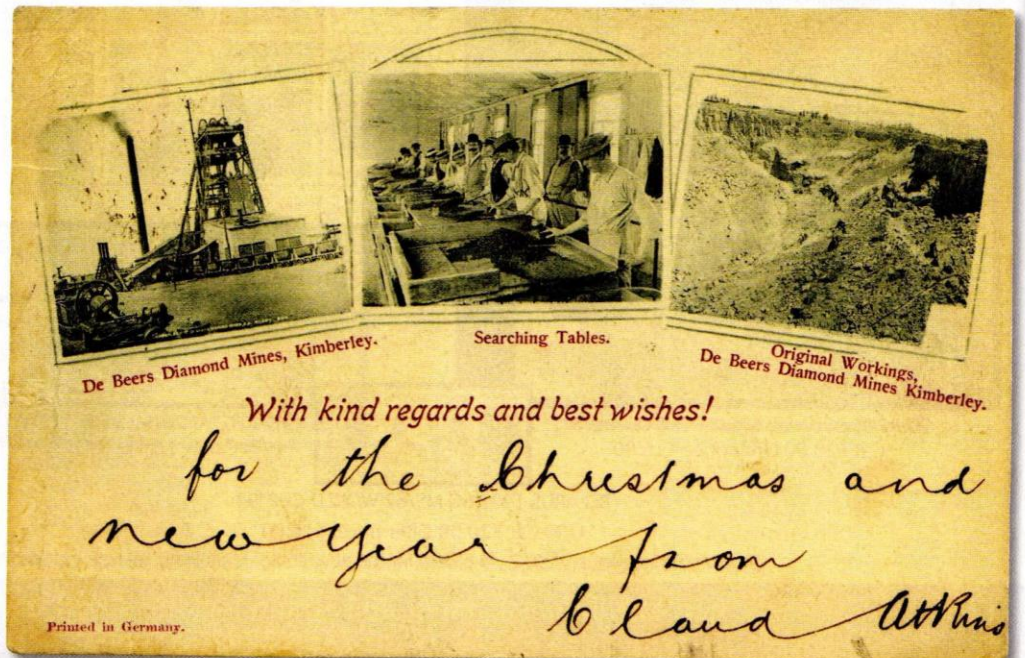 De Beers Diamond Mines, Kimberley.
Searching Tables.
Original Workings,
De Beers Diamond Mines Kimberley.
With kind regards and best wishes!
for the Christmas and
new Year from
Claud Atkins
Printed in Germany.